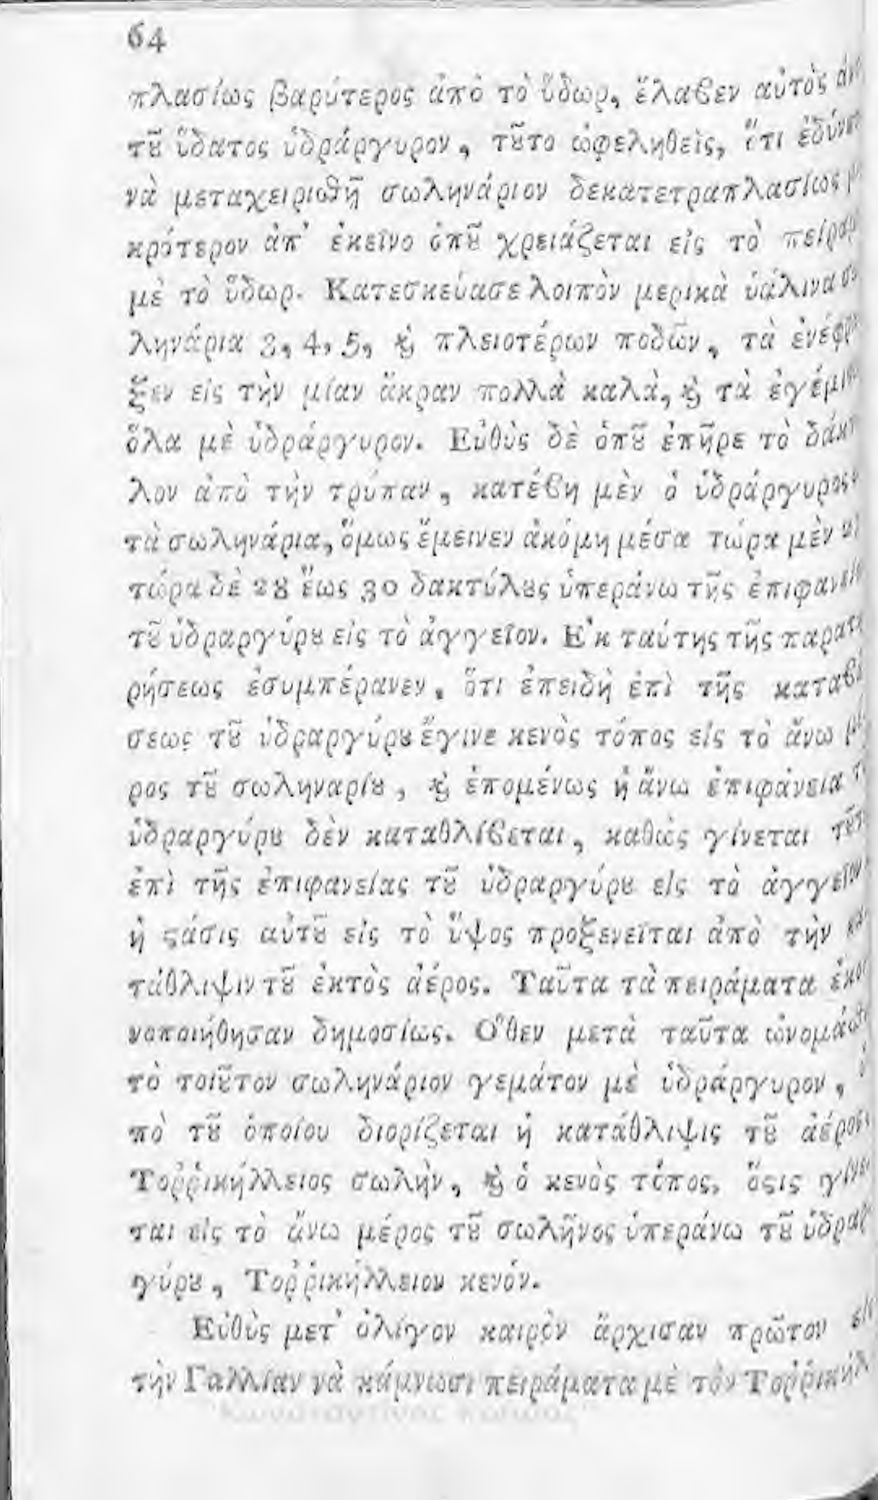 64
πλασίως βαρύτερος ἀπὸ τὸ ὕδωρ, ἔλαβεν αὐτὸς ἀν
τȣ͂ ὕδατος ὑδράργυρον, τȣ͂το ὠφεληθεὶς, ὅτι ἐδύν
νὰ μεταχειρισθῇ σωληνάριον δεκατετραπλασίως μ
κρότερον ἀπ' ἐκεῖνο ὁπȣ͂ χρειάζεται εἰς τὸ πείρα
μὲ τὸ ὕδωρ. Κατεσκεύασε λοιπὸν μερικὰ ὑάλινα σ
ληνάρια 3, 4, 5, ϗ πλειοτέρων ποδῶν, τὰ ἐνέφρ
ξεν εἰς τὴν μίαν ἄκραν πολλὰ καλὰ, ϗ τὰ ἐγέμι
ὅλα μὲ ὑδράργυρον. Εὐθὺς δὲ ὁπȣ͂ ἐπῆρε τὸ δάκτ
λον ἀπὸ τὴν τρύπαν, κατέβη μὲν ὁ ὑδράργυρος
τὰ σωληνάρια, ὅμως ἔμεινεν ἀκόμη μέσα τώρα μὲν
τώρα δὲ 28 ἕως 30 δακτύλȣς ὑπεράνω τῆς ἐπιφανεί
τȣ͂ ὑδραργύρȣ εἰς τὸ ἀγγεῖον. Ἐκ ταύτης τῆς παρατ
ρήσεως ἐσυμπέρανεν, ὅτι ἐπειδὴ ἐπὶ τῆς καταβ
σεως τȣ͂ ὑδραργύρȣ ἔγινε κενὸς τόπος εἰς τὸ ἄνω μ
ρος τȣ͂ σωληναρίȣ, ϗ ἑπομένως ἡ ἄνω ἐπιφάνεια τ
ὑδραργύρȣ δὲν καταθλίβεται, καθὼς γίνεται τȣ͂τ
ἐπὶ τῆς ἐπιφανείας τȣ͂ ὑδραργύρȣ εἰς τὸ ἀγγεῖον
ἡ ϛάσις αὐτȣ͂ εἰς τὸ ὕψος προξενεῖται ἀπὸ τὴν κα
τάθλιψιν τȣ͂ ἐκτὸς ἀέρος. Ταῦτα τὰ πειράματα ἐκοι
νοποιήθησαν δημοσίως. Ὅθεν μετὰ ταῦτα ὠνομάσθ
τὸ τοιȣ͂τον σωληνάριον γεμάτον μὲ ὑδράργυρον, ἀ
πὸ τȣ͂ ὁποίου διορίζεται ἡ κατάθλιψις τȣ͂ ἀέρος
Τοῤῥικήλλειος σωλὴν, ϗ ὁ κενὸς τόπος, ὅϛις γίνε
ται εἰς τὸ ἄνω μέρος τȣ͂ σωλῆνος ὑπεράνω τȣ͂ ὑδραρ
γύρȣ, Τοῤῥικήλλειον κενόν.
Εὐθὺς μετ' ὀλίγον καιρὸν ἄρχισαν πρῶτον εἰς
τὴν Γαλλίαν νὰ κάμνωσι πειράματα μὲ τὸν Τοῤῥικήλ